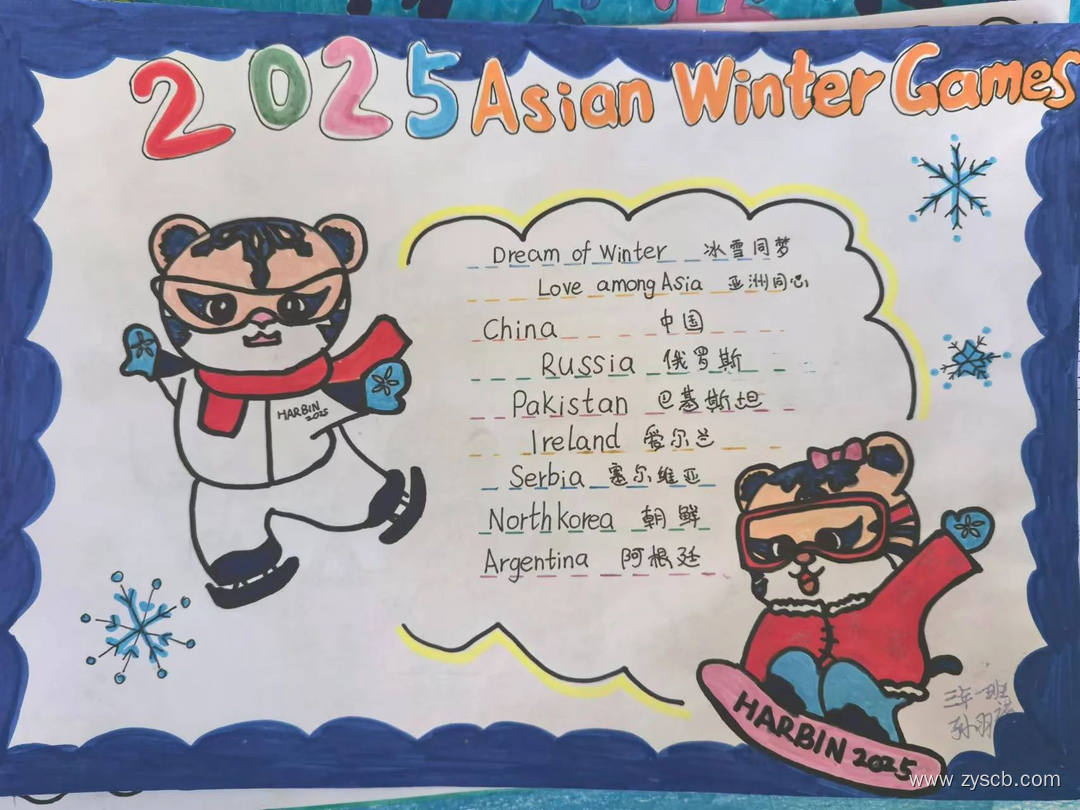 2025 Asian Winter Games
Dream of Winter 冰雪同梦
Love among Asia 亚洲同心
China 中国
Russia 俄罗斯
Pakistan 巴基斯坦
Ireland 爱尔兰
Serbia 塞尔维亚
North korea 朝鲜
Argentina 阿根廷
HARBIN
2025
HARBIN 2025
三年一班
孙羽
www.zyscb.com